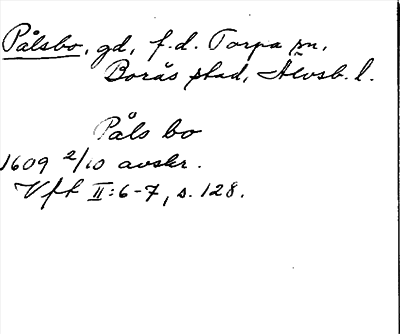 Pålsbo, gd, f.d. Torpa sn,
Borås stad, Älvsb. l.
Påls bo
1609 2/10 avskr.
Vft II:6-7, s. 128.